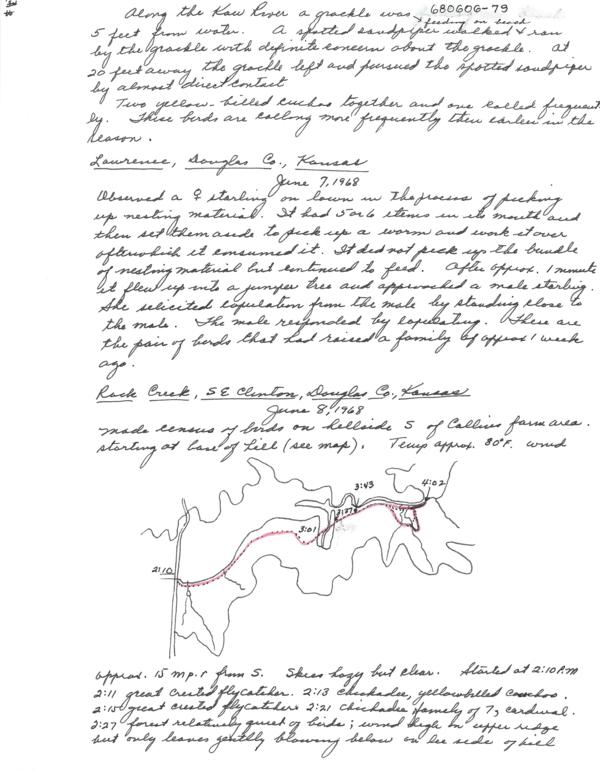 680606-79
Along the Kaw River a grackle was feeding on sand
5 feet from water. A spotted sandpiper walked & ran
by the grackle with definite concern about the grackle. At
20 feet away the grackle left and pursued the spotted sandpiper
by almost direct contact
Two yellow-billed cuckoo together and one called frequent
ly. These birds are calling more frequently then earlier in the
season.
Lawrence, Douglas Co., Kansas
June 7, 1968
Observed a ♀ starling on lawn in the process of picking
up nesting material. It had 5 or 6 items in its mouth and
then set them aside to pick up a worm and work it over
after which it consumed it. It did not pick up the bundle
of nesting material but continued to feed. After approx. 1 minute
it flew up into a juniper tree and approached a male starling.
She solicited copulation from the male by standing close to
the male. The male responded by copulating. These are
the pair of birds that had raised a family of approx 1 week
ago.
Rock Creek, SE Clinton, Douglas Co., Kansas
June 8, 1968
made census of birds on hillside S of Collins farm area.
starting at base of hill (see map). Temp approx. 80°F. wind
2:10
3:01
3:27
3:43
4:02
approx. 15 m.p.h from S. Skies hazy but clear. Started at 2:10 P.M
2:11 great crested flycatcher. 2:13 chickadee, yellowbilled cuckoo.
2:15 great crested flycatchers 2:21 chickadee family of 7, cardinal.
2:27 forest relatively quiet of birds; wind high on upper ridge
but only leaves gently blowing below on lee side of hill